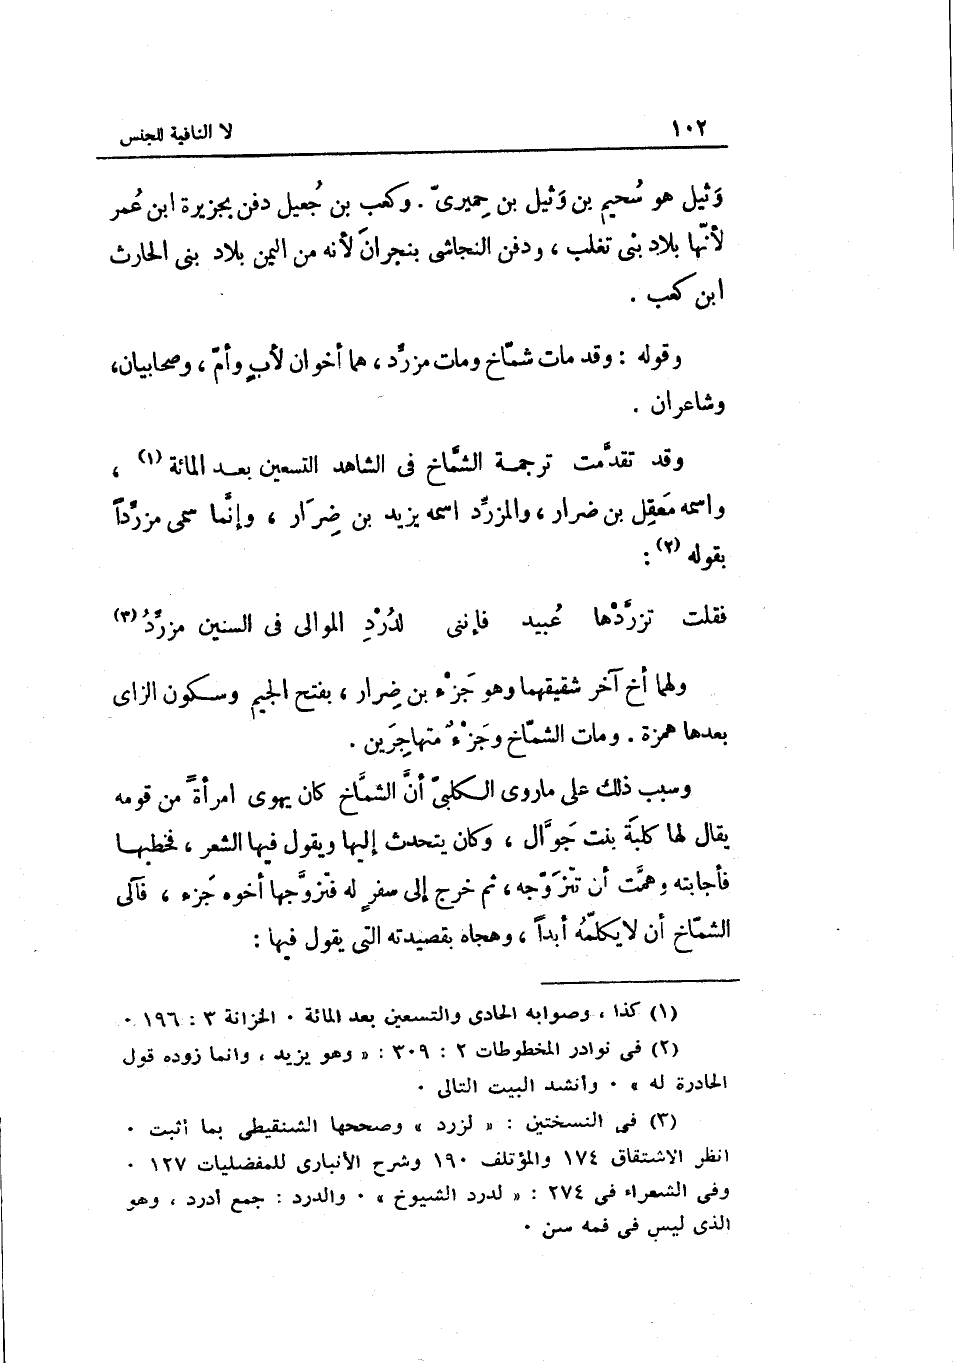 ١٠٢ لا النافية للجنس
وَثيل هو سُحيم بن وَثيل بن حِميرىّ . وكعب بن جُعيل دفن بجزيرة ابن عُمر
لأنّها بلاد بنى تغلب ، ودفن النجاشى بنجرانَ لأنه من اليمن بلاد بنى الحارث
ابن كعب .
وقوله : وقد مات شمّاخ ومات مزرِّد ، هما أخوان لأبٍ وأمّ ، وصحابيان،
وشاعران .
وقد تقدَّمت ترجمة الشَّماخ فى الشاهد التسعين بعد المائة (١) ،
واسمه مَعقِل بن ضرار ، والمزرِّد اسمه يزيد بن ضِرَار ، وإنَّما سمى مزرِّداً
بقوله (٢) :
فقلت تزرَّدْها عُبيد فإننى لدُرْدِ الموالى فى السنين مزرِّدُ (٣)
ولهما أخ آخر شقيقهما وهو جَزْء بن ضِرار ، بفتح الجيم وسكون الزاى
بعدها همزة . ومات الشمّاخ وجَزْءٌ متهاجِرَين .
وسبب ذلك على ماروى الكلبىّ أنَّ الشمَّاخ كان يهوى امرأةً من قومه
يقال لها كلبَة بنت جَوَّال ، وكان يتحدث إليها ويقول فيها الشعر ، فخطبها
فأجابته وهمَّت أن تتزَوّجه ، ثم خرج إلى سفرٍ له فتزوَّجها أخوه جَزء ، فآلى
الشمّاخ أن لايكلّمُه أبداً ، وهجاه بقصيدته التى يقول فيها :
(١) كذا ، وصوابه الحادى والتسعين بعد المائة . الخزانة ٣ : ١٩٦ .
(٢) فى نوادر المخطوطات ٢ : ٣٠٩ : « وهو يزيد ، وانما زوده قول
الحادرة له » . وأنشد البيت التالى .
(٣) فى النسختين : « لزرد » وصححها الشنقيطى بما أثبت .
انظر الاشتقاق ١٧٤ والمؤتلف ١٩٠ وشرح الأنبارى للمفضليات ١٢٧ .
وفى الشعراء فى ٢٧٤ : « لدرد الشيوخ » . والدرد : جمع أدرد ، وهو
الذى ليس فى فمه سن .